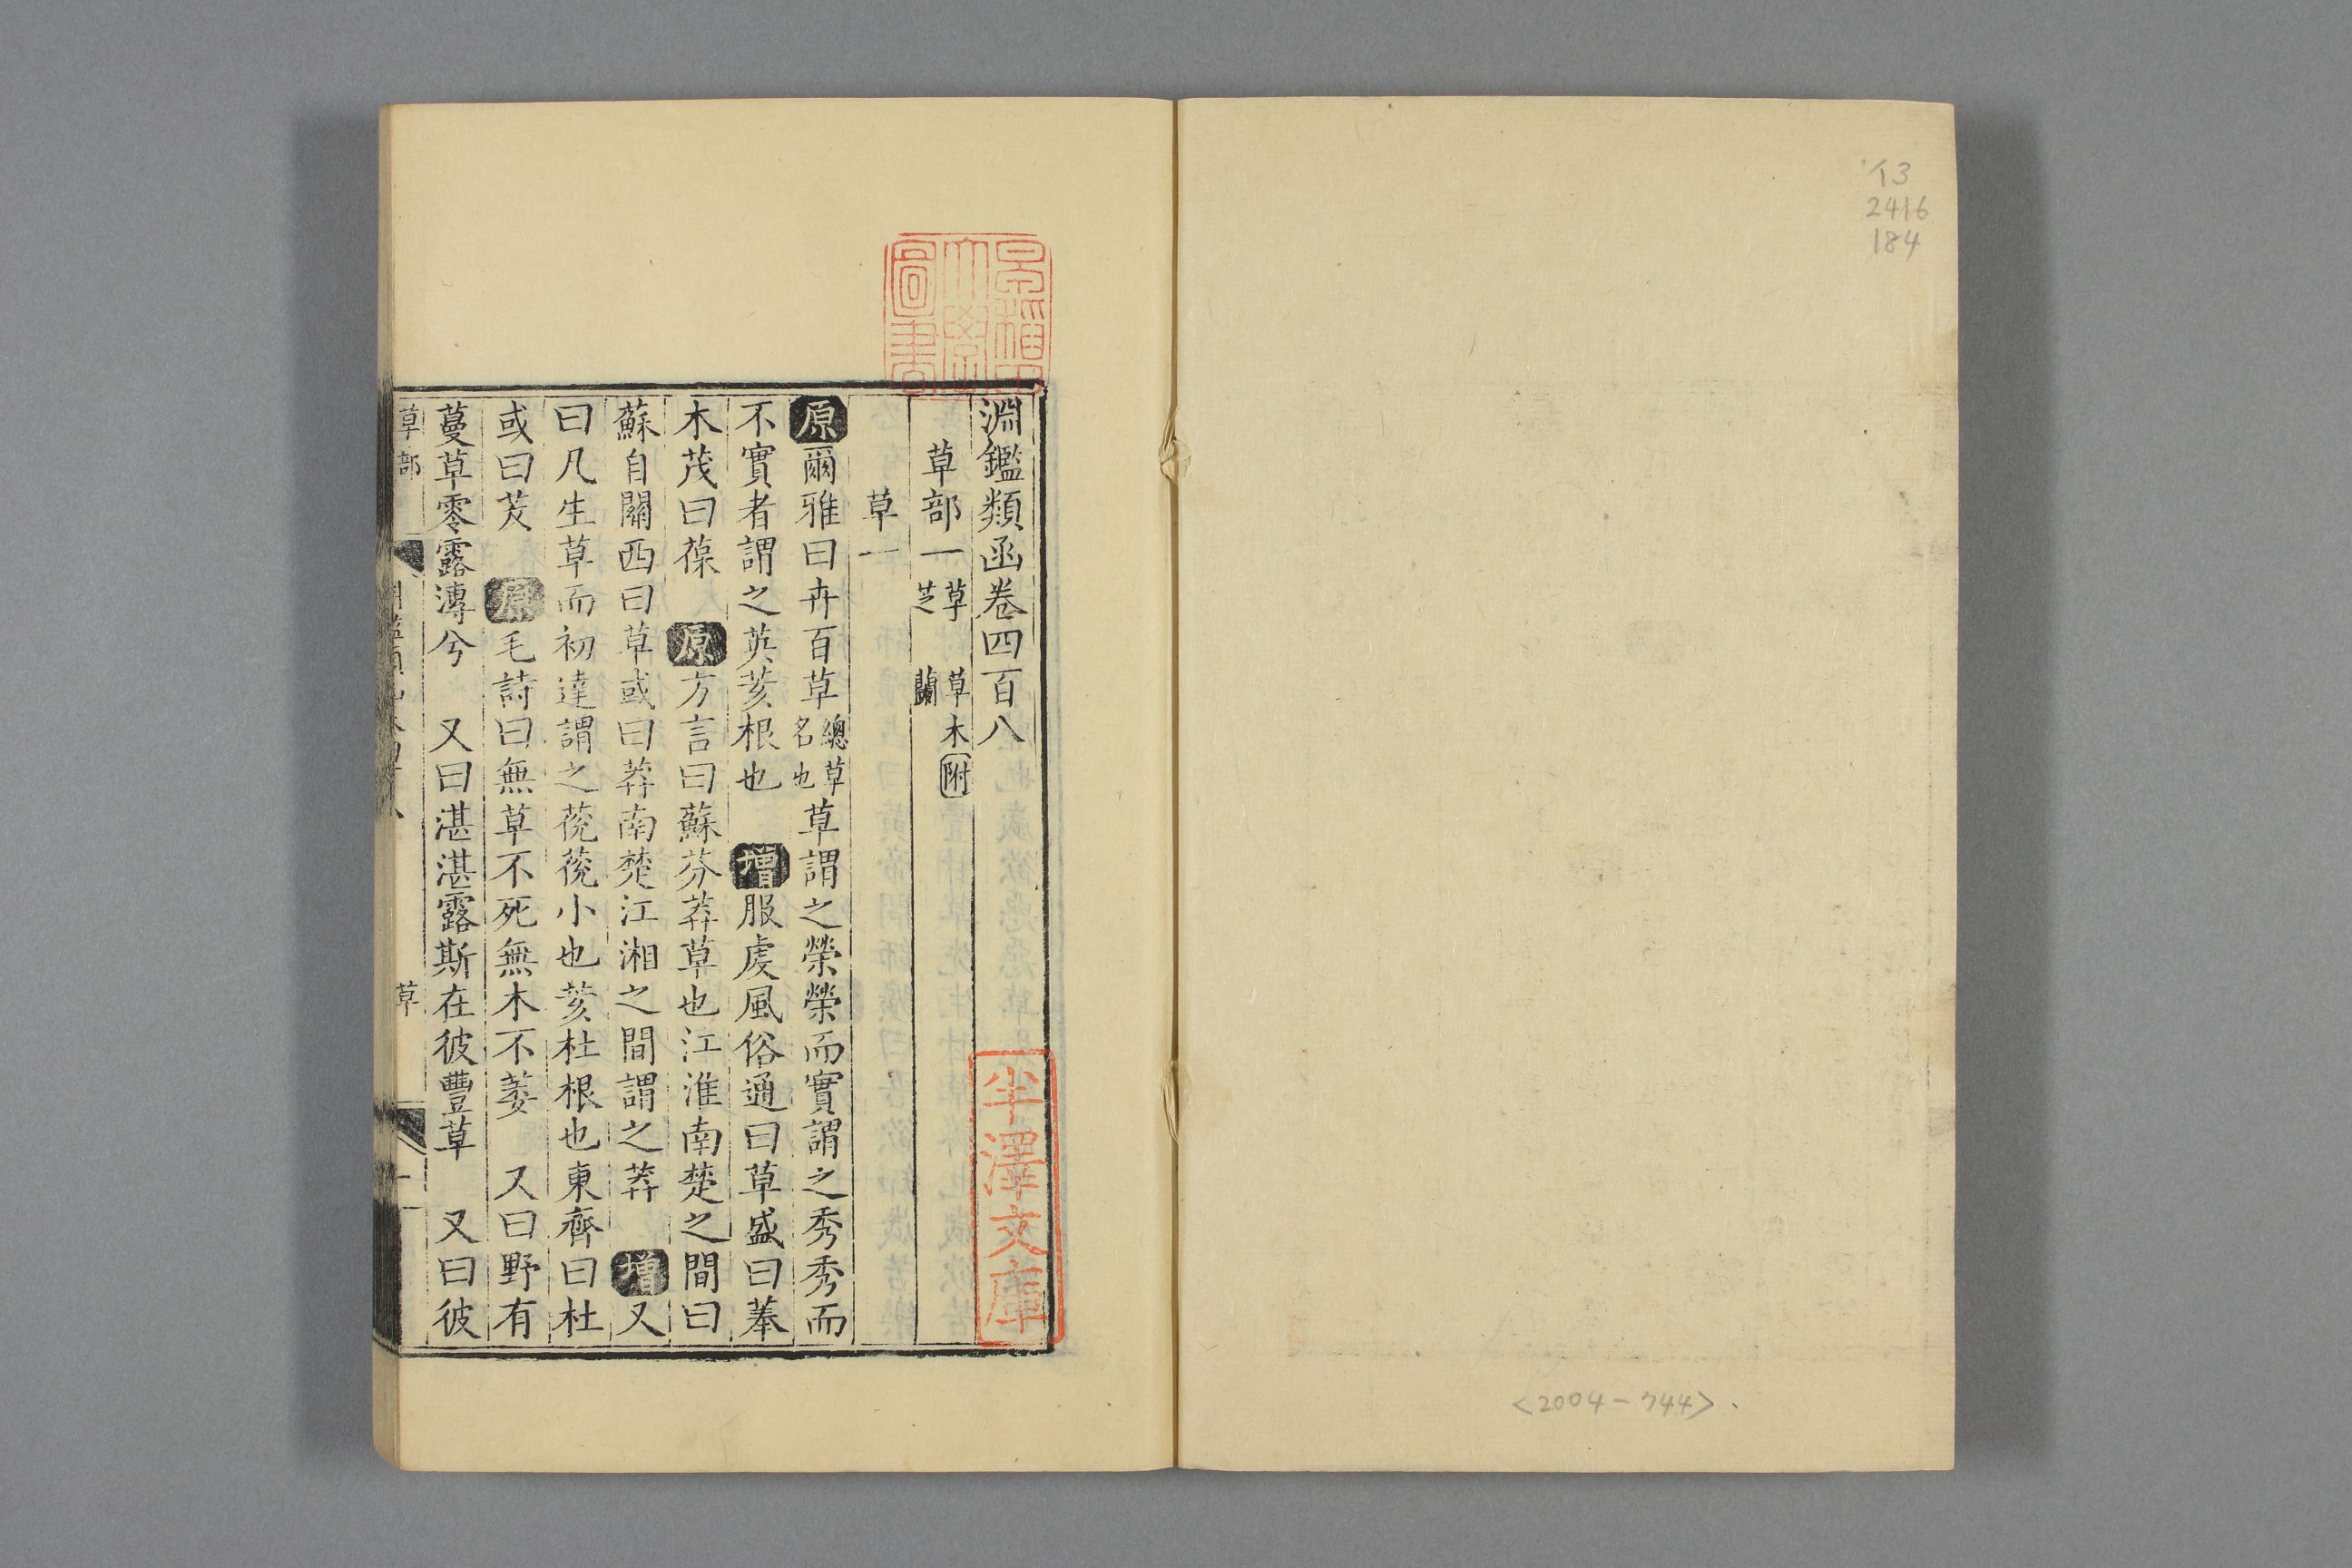 イ3
2416
184
<2004-744>
早稲田大學圖書
半澤文庫
淵鑑類函卷四百八
草部一 草 草木附 芝 蘭
草一
原爾雅曰卉百草總草名也草謂之榮榮而實謂之秀秀而
不實者謂之英荄根也 增服虔風俗通曰草盛曰菶
木茂曰葆 原方言曰蘇芬莽草也江淮南楚之間曰
蘇自關西曰草或曰莽南楚江湘之間謂之莽 增又
曰凡生草而初達謂之莌莌小也荄杜根也東齊曰杜
或曰茇 原毛詩曰無草不死無木不萎 又曰野有
蔓草零露漙兮 又曰湛湛露斯在彼豐草 又曰彼
草部 草